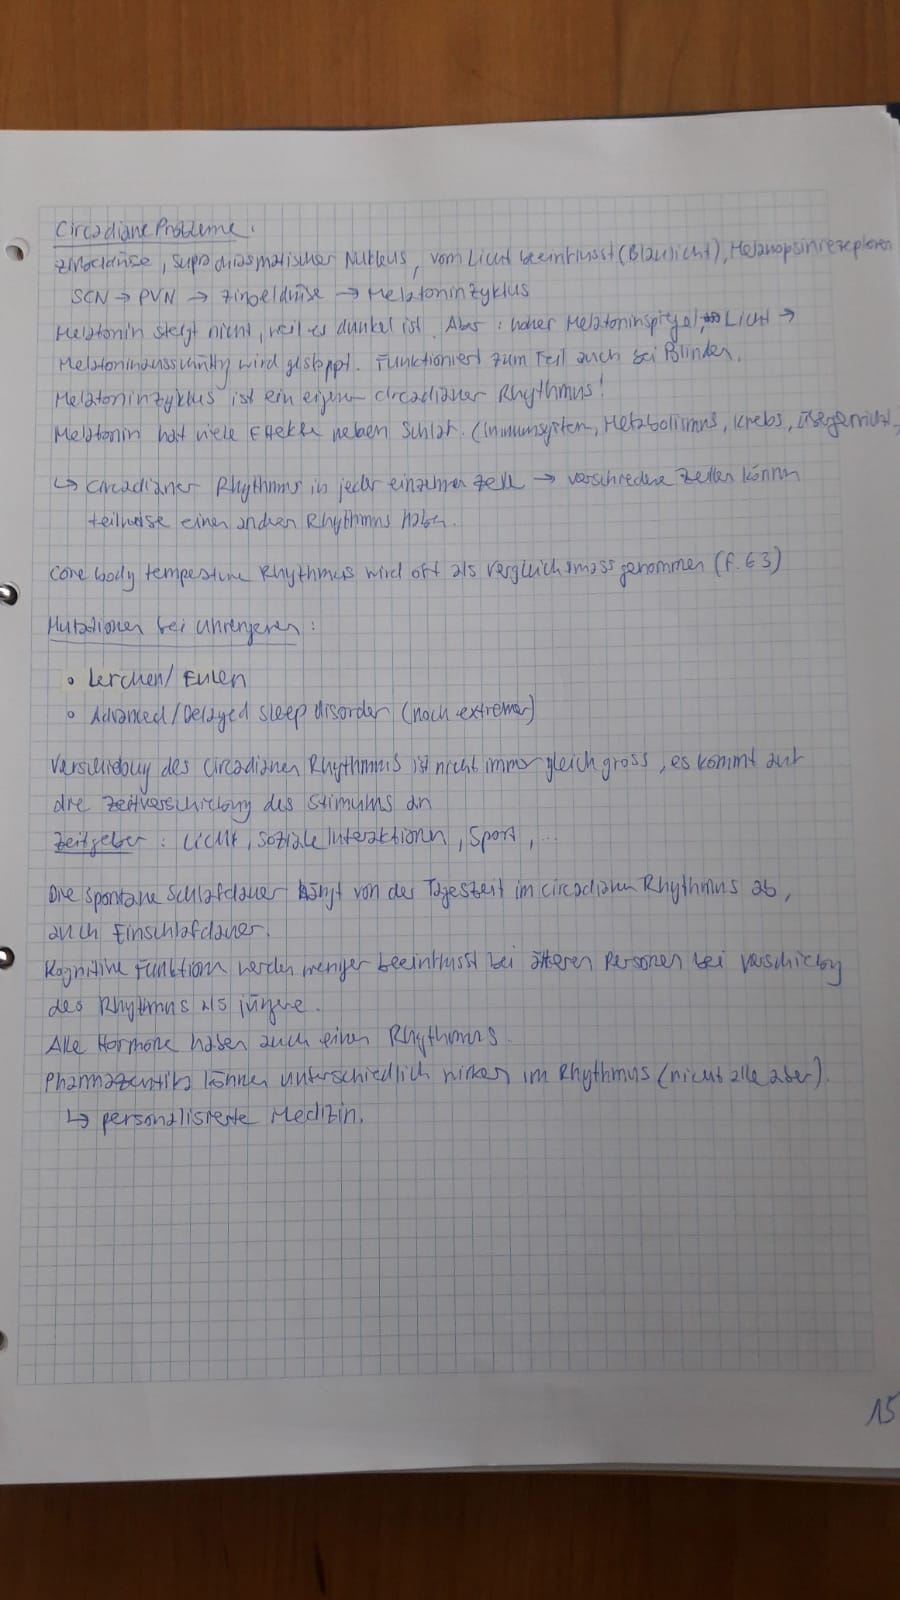 Circadiane Probleme:
Zirbeldrüse, Suprachiasmatischer Nukleus, vom Licht beeinflusst (Blaulicht), Melanopsinrezeptoren
SCN → PVN → Zirbeldrüse → Melatoninzyklus
Melatonin steigt nicht, weil es dunkel ist. Aber: hoher Melatoninspiegel, Licht →
Melatoninausschüttg wird gestoppt. Funktioniert zum Teil auch bei Blinden.
Melatoninzyklus ist ein eigener circadianer Rhythmus!
Melatonin hat viele Effekte neben Schlaf. (Immunsystem, Metabolismus, Krebs, Übergewicht,
↳ circadianer Rhythmus in jeder einzelnen Zelle → verschiedene Zellen können
teilweise einen andren Rhythmus haben.
Core body temperature Rhythmus wird oft als Vergleichsmass genommen (F. 63)
Mutationen bei Uhrengenen:
• Lerchen/Eulen
• Advanced/Delayed sleep disorder (noch extremer)
Verschiebung des circadianen Rhythmus ist nicht immer gleich gross, es kommt auf
die Zeitverschiebung des Stimulus an
Zeitgeber: Licht, soziale Interaktionen, Sport, ...
Die spontane Schlafdauer hängt von der Tageszeit im circadianen Rhythmus ab,
auch Einschlafdauer.
Kognitive Funktionen werden weniger beeinflusst bei älteren Personen bei Verschiebg
des Rhythmus als jüngere.
Alle Hormone haben auch einen Rhythmus.
Pharmazeutika können unterschiedlich wirken im Rhythmus (nicht alle aber).
↳ personalisierte Medizin.
15